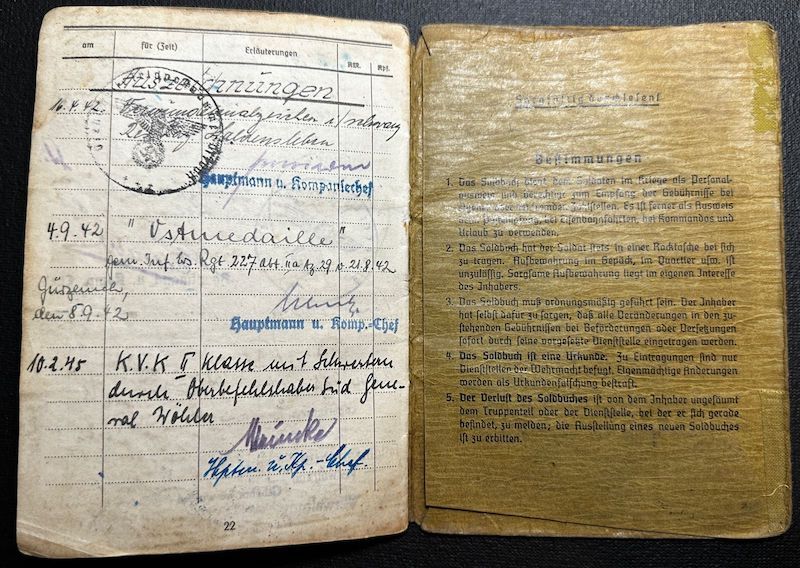 am für (Zeit) Erläuterungen RM. Rpf.
Auszeichnungen
16.4.42 Verwundetenabzeichen i/schwarz
Haldensleben
Hauptmann u. Kompaniechef
4.9.42 "Ostmedaille"
gem. Inf. Ers. Rgt. 227 Abt. IIa Az. 29 v. 21.8.42
Gürzenich,
den 8.9.42
Hauptmann u. Komp.-Chef
10.2.45 K.V.K II Klasse mit Schwertern
durch Oberbefehlshaber Süd Gene-
ral Wöhler
Meincke
Hptm. u. Kp.-Chef.
22
Sorgfältig durchlesen!
Bestimmungen
1. Das Soldbuch dient dem Soldaten im Kriege als Personal-
ausweis und berechtigt zum Empfang der Gebührnisse bei
eigenen oder fremden Zahlstellen. Es ist ferner als Ausweis
bei Postempfang, bei Eisenbahnfahrten, bei Kommandos und
Urlaub zu verwenden.
2. Das Soldbuch hat der Soldat stets in einer Rocktasche bei sich
zu tragen. Aufbewahrung im Gepäck, im Quartier usw. ist
unzulässig. Sorgsame Aufbewahrung liegt im eigenen Interesse
des Inhabers.
3. Das Soldbuch muß ordnungsmäßig geführt sein. Der Inhaber
hat selbst dafür zu sorgen, daß alle Veränderungen in den zu-
stehenden Gebührnissen bei Beförderungen oder Versetzungen
sofort durch seine vorgesetzte Dienststelle eingetragen werden.
4. Das Soldbuch ist eine Urkunde. Zu Eintragungen sind nur
Dienststellen der Wehrmacht befugt. Eigenmächtige Änderungen
werden als Urkundenfälschung bestraft.
5. Der Verlust des Soldbuches ist von dem Inhaber ungesäumt
dem Truppenteil oder der Dienststelle, bei der er sich gerade
befindet, zu melden; die Ausstellung eines neuen Soldbuches
ist zu erbitten.